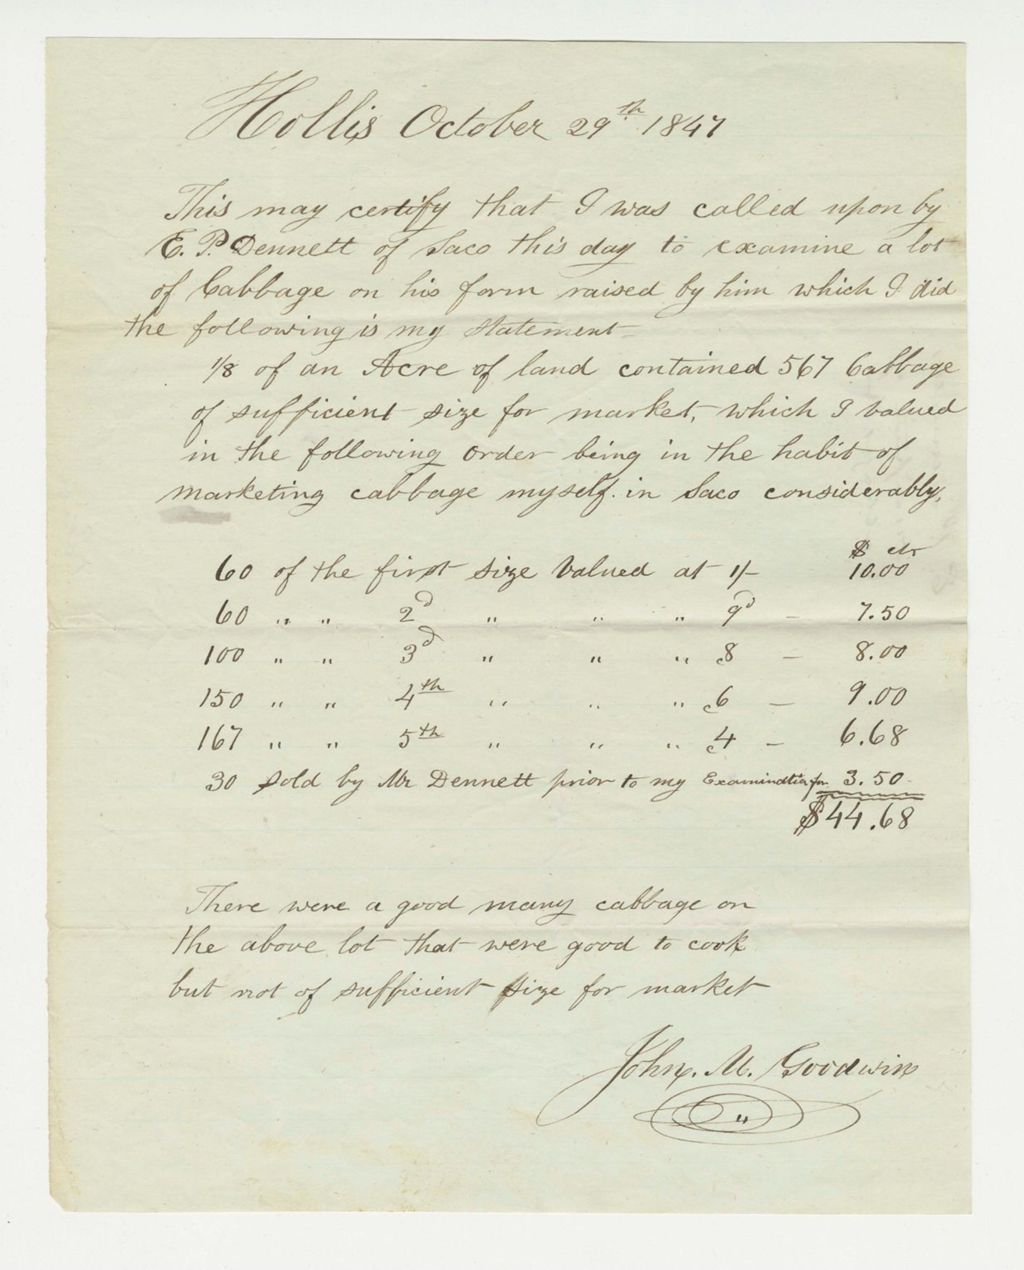 Hollis October 29th. 1847
This may certify that I was called upon by
E. P. Dennett of Saco this day to examine a lot
of Cabbage on his farm raised by him which I did
the following is my statement
1/8 of an Acre of land contained 567 Cabbage
of sufficient size for market, which I valued
in the following order being in the habit of
marketing cabbage myself. in Saco considerably,
$ cts
60 of the first size Valued at 1/- 10.00
60 " " 2d " " " 9d - 7.50
100 " " 3d " " " c8 - 8.00
150 " " 4th " " " c6 - 9.00
167 " " 5th " " " c4 - 6.68
30 sold by Mr Dennett prior to my for 3.50
$44.68
There were a good many cabbage on
the above lot that were good to cook
but not of sufficient size for market
John. M. Goodwin